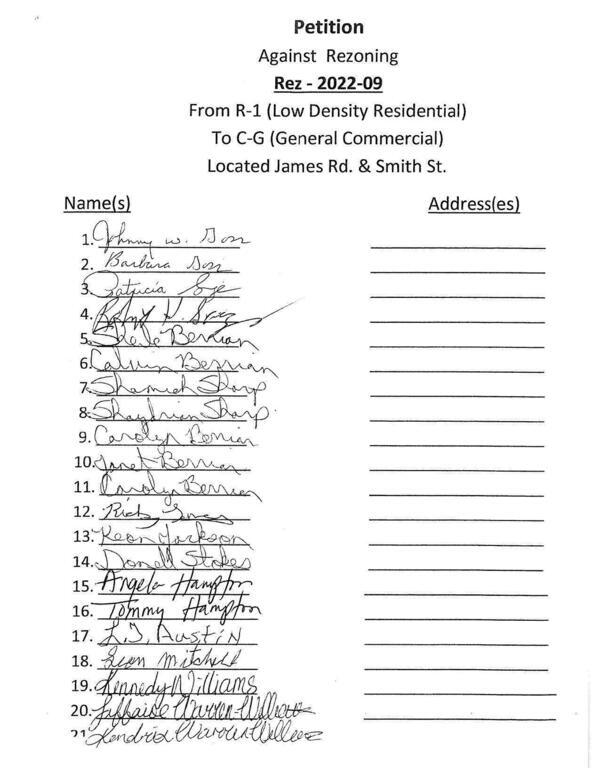 Petition
Against Rezoning
Rez - 2022-09
From R-1 (Low Density Residential)
To C-G (General Commercial)
Located James Rd. & Smith St.
Name(s) Address(es)
1. Johnny W.
2. Barbara
3. Patricia
4.
5. Berrian
6. Calvin Berrian
7. Sharp
8. Sharp
9. Carolyn Berrian
10. Janet Berrian
11. Carolyn Berrian
12. Ricky
13. Keon Jackson
14. Donell Stokes
15. Angela Hampton
16. Tommy Hampton
17. L.J. Austin
18. Leon Mitchell
19. Kennedy Williams
20. Warren-
21 Kendrix Warren-